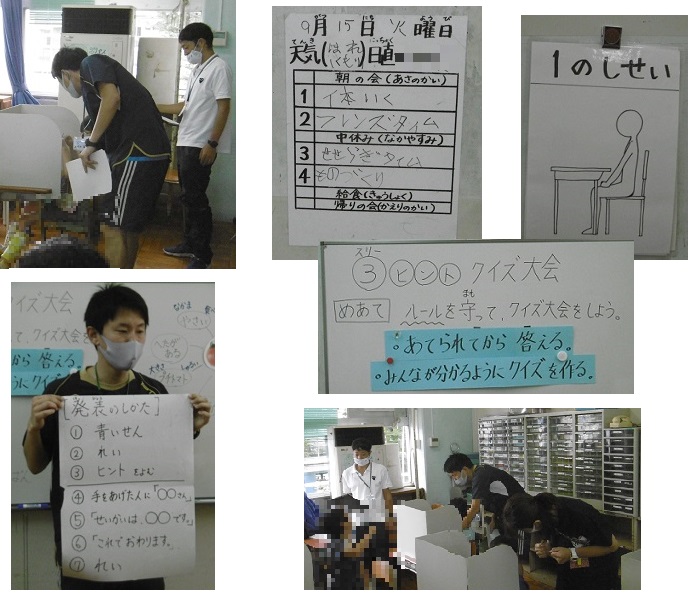 9月15日 火曜日
がつ にち よう び
天気(はれ くもり)日直
てんき にっちょく
朝の会(あさのかい)
1 イ本いく
2 フレンズタイム
中休み(なかやすみ)
3 せせらぎタイム
4 ものづくり
給食(きゅうしょく)
帰りの会(かえりのかい)
1のしせい
スリー
③ヒントクイズ大会
めあて ルールを守って、クイズ大会をしよう。
まも
。あてられてから 答える。
。みんなが分かるようにクイズを作る。
イズ大会
て、クイズ大会
から 答える。
うにクイ
やさい
へたがある
[発表のしかた]
① 青いせん
② れい
③ ヒントをよむ
④ 手をあげた人に「〇〇さん」
⑤「せいかいは、〇〇です。」
⑥「これでおわります。
⑦ れい